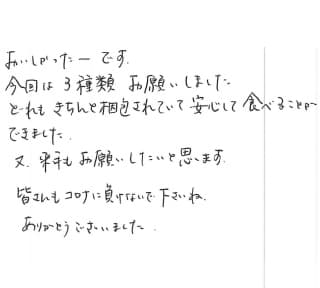 おいしかったーです。
今回は3種類お願いしました
どれもきちんと梱包されていて安心して食べることが
できました.
又、来年もお願いしたいと思います.
皆さんもコロナに負けないで下さいね.
ありがとうございました.